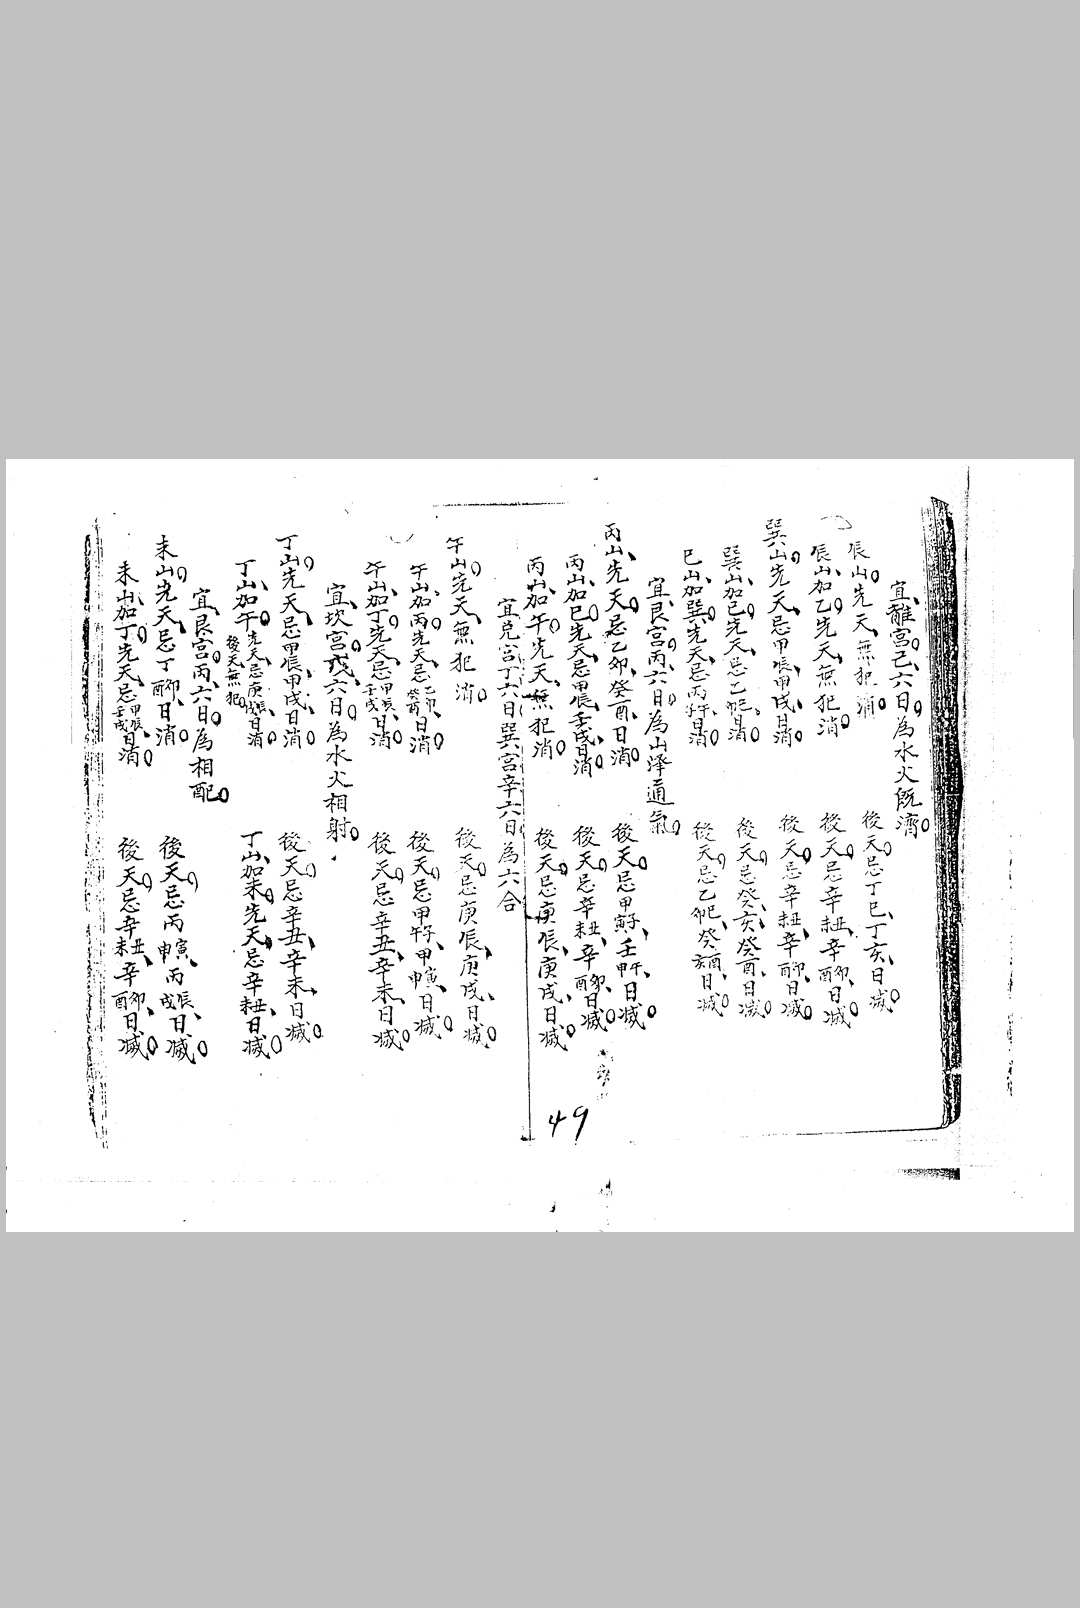 宜離宮己六日為水火既濟
辰山先天無犯消 後天忌丁巳丁亥日滅
辰山加乙先天無犯消 後天忌辛丑未辛卯酉日滅
巽山先天忌甲辰甲戌日消 後天忌辛丑未辛卯酉日滅
巽山加巳先天忌乙巳日消 後天忌癸亥癸酉日滅
巳山加巽先天忌丙子午日消 後天忌乙卯巳癸酉亥日滅
宜艮宮丙六日為山澤通氣
丙山先天忌乙卯癸酉日消 後天忌甲子寅壬午申日滅
丙山加巳先天忌甲辰壬戌日消 後天忌辛丑未辛卯酉日滅
丙山加午先天無犯消 後天忌庚辰庚戌日滅
宜兌宮丁六日巽宮辛六日為六合
午山先天無犯消 後天忌庚辰庚戌日滅
午山加丙先天忌乙卯癸酉日消 後天忌甲子午甲寅申日滅
午山加丁先天忌甲辰壬戌日消 後天忌辛丑辛未日滅
宜坎宮戊六日為水火相射
丁山先天忌甲辰甲戌日消 後天忌辛丑辛未日滅
丁山加午先天忌庚辰戌日消後天無犯 丁山加未先天忌辛丑未日滅
宜艮宮丙六日為相配
未山先天忌丁卯酉日消 後天忌丙寅申丙辰戌日滅
未山加丁先天忌甲辰壬戌日消 後天忌辛丑未辛卯酉日滅
49